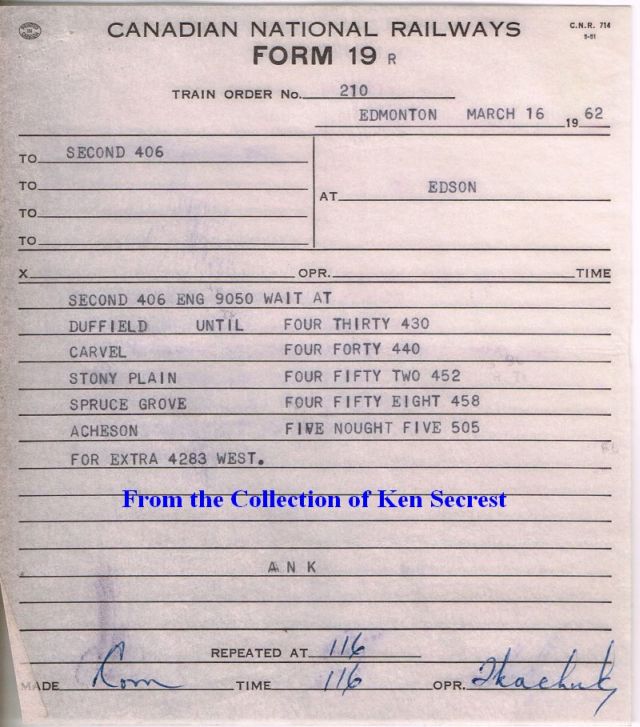 CANADIAN NATIONAL RAILWAYS
C.N.R. 714
FORM 19 R
TRAIN ORDER No. 210
EDMONTON MARCH 16 19 62
TO SECOND 406
TO
TO
TO
AT EDSON
X OPR. TIME
SECOND 406 ENG 9050 WAIT AT
DUFFIELD UNTIL FOUR THIRTY 430
CARVEL FOUR FORTY 440
STONY PLAIN FOUR FIFTY TWO 452
SPRUCE GROVE FOUR FIFTY EIGHT 458
ACHESON FIVE NOUGHT FIVE 505
FOR EXTRA 4283 WEST.
From the Collection of Ken Secrest
A N K
REPEATED AT 116
MADE Com TIME 116 OPR. Tkachuk